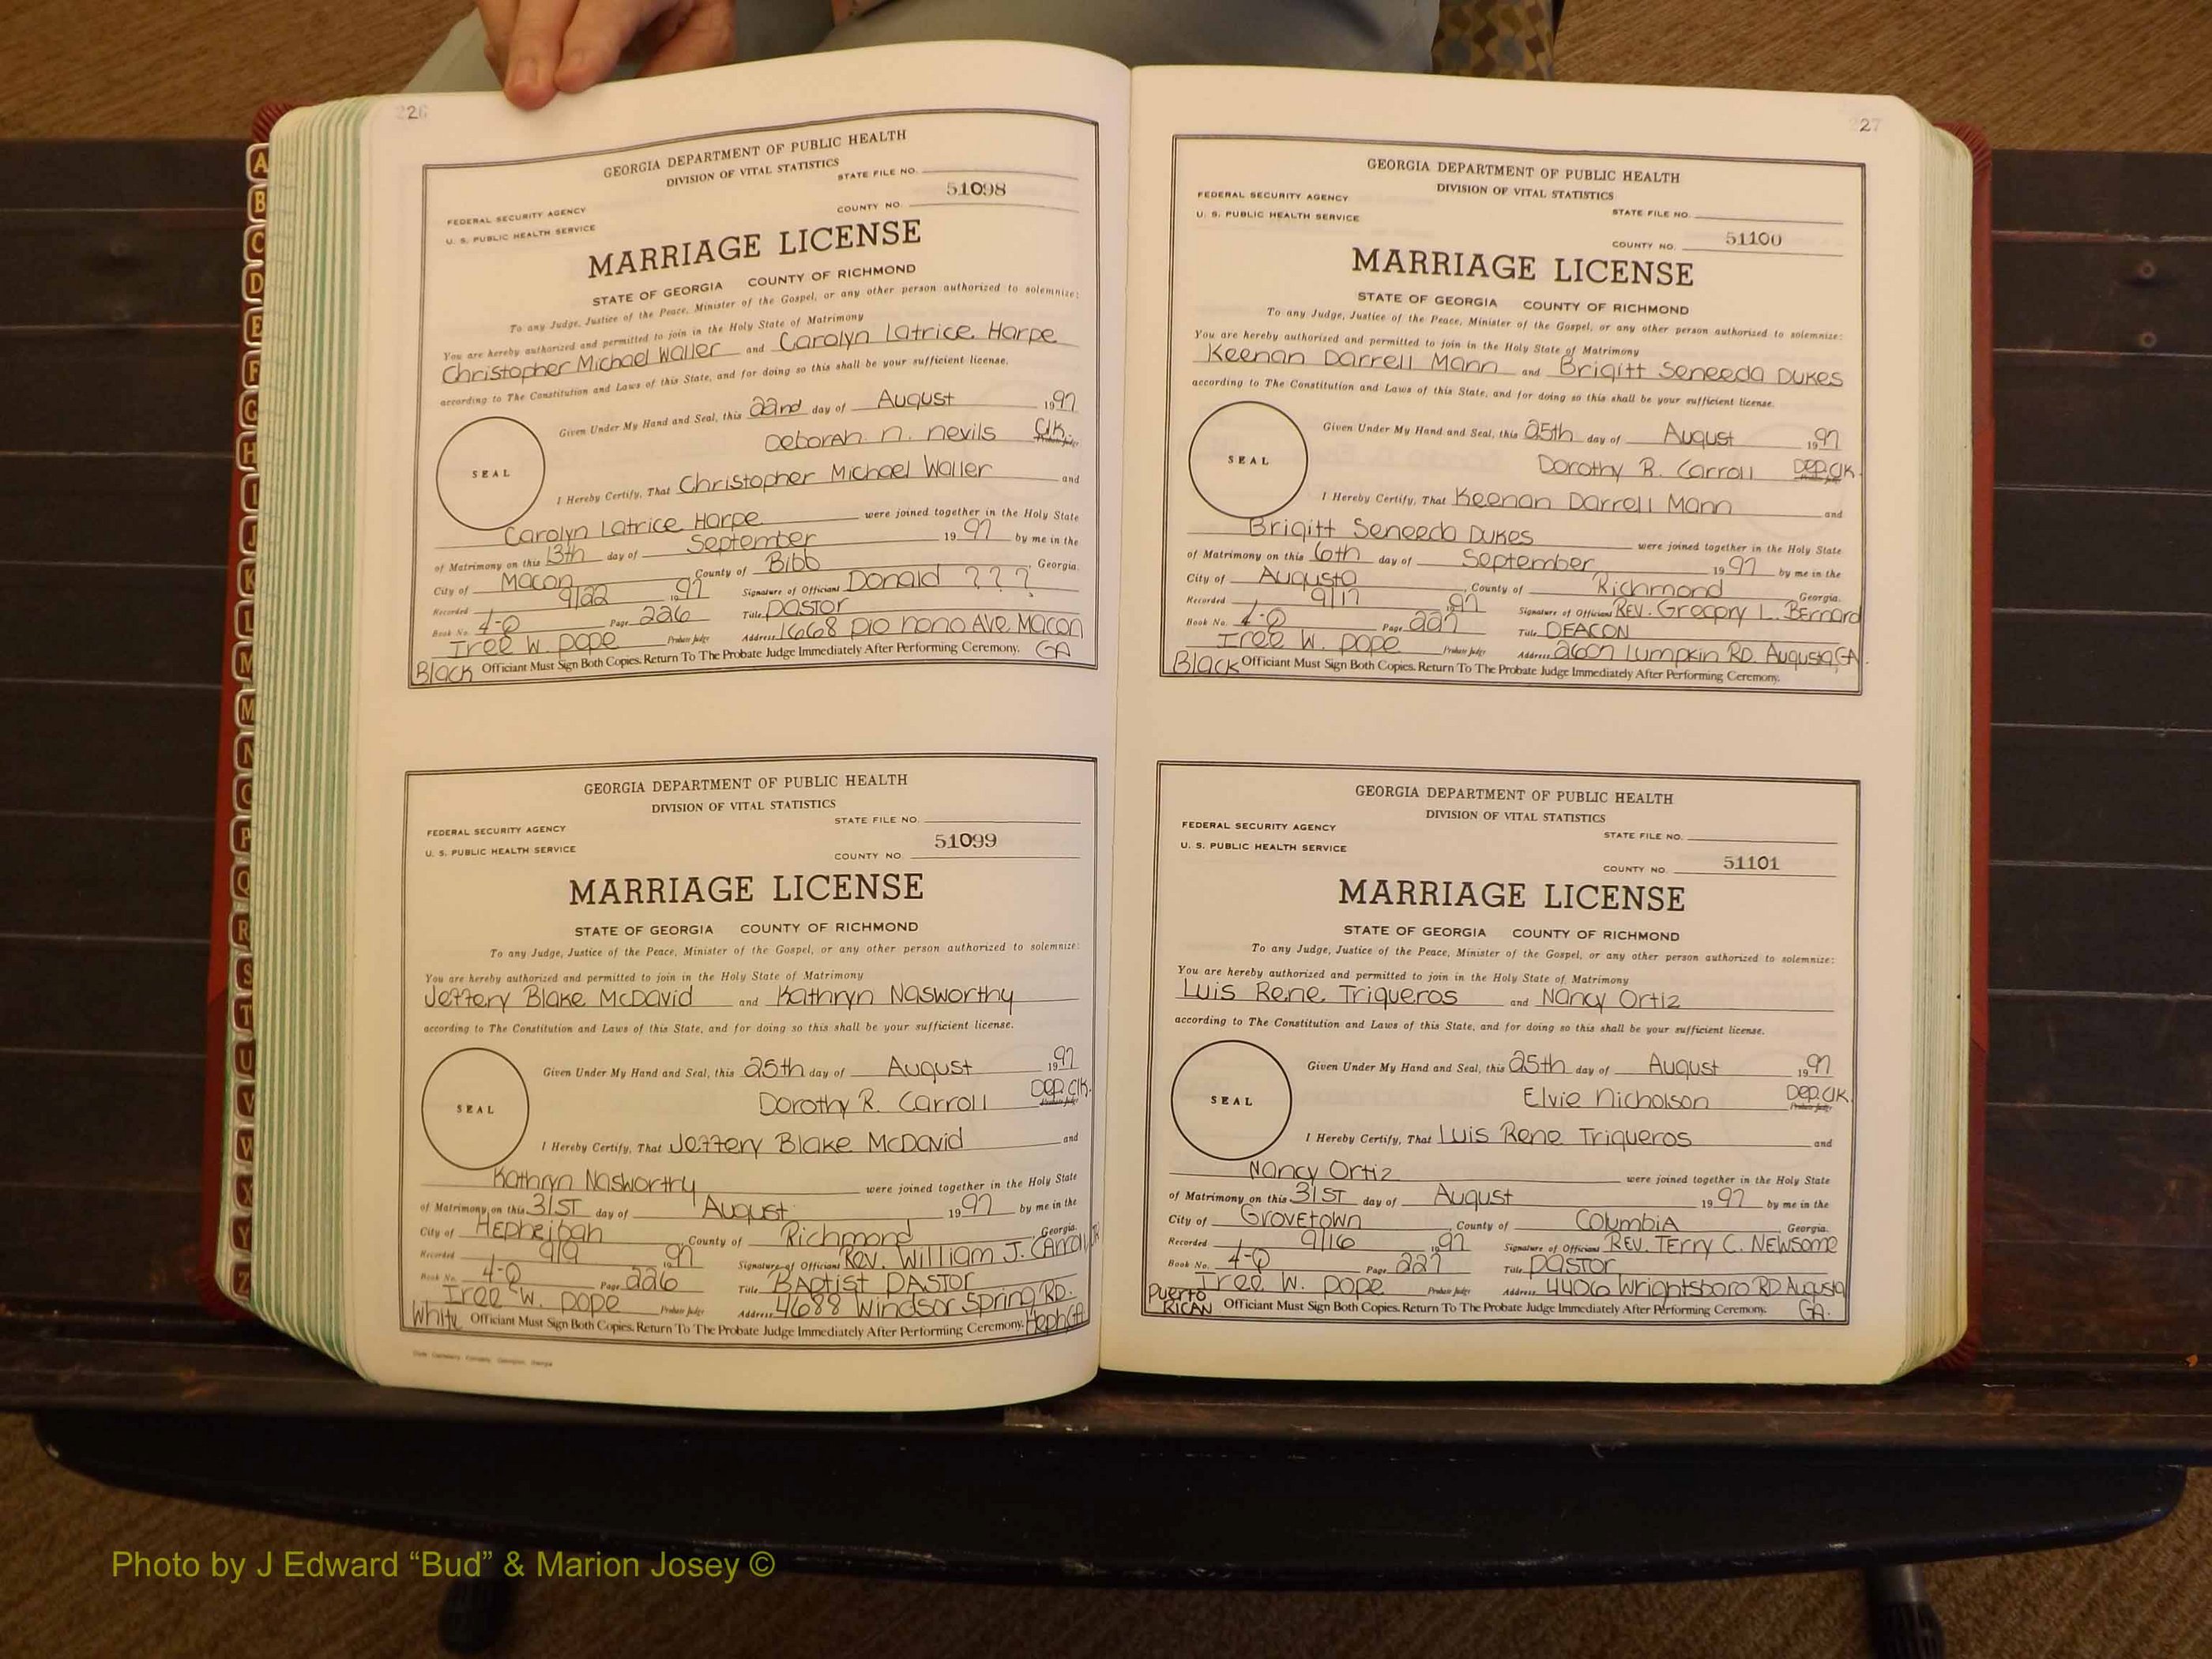 226
GEORGIA DEPARTMENT OF PUBLIC HEALTH
DIVISION OF VITAL STATISTICS
STATE FILE NO.
FEDERAL SECURITY AGENCY
U. S. PUBLIC HEALTH SERVICE
COUNTY NO. 51098
MARRIAGE LICENSE
STATE OF GEORGIA COUNTY OF RICHMOND
To any Judge, Justice of the Peace, Minister of the Gospel, or any other person authorized to solemnize:
You are hereby authorized and permitted to join in the Holy State of Matrimony
Christopher Michael Waller and Carolyn Latrice Harpe
according to The Constitution and Laws of this State, and for doing so this shall be your sufficient license.
Given Under My Hand and Seal, this 22nd day of August 1997
Deborah N. Nevils Clk.
Probate Judge
SEAL
I Hereby Certify, That Christopher Michael Waller and
Carolyn Latrice Harpe were joined together in the Holy State
of Matrimony on this 13th day of September 1997 by me in the
City of Macon, County of Bibb, Georgia.
Recorded 9/22 1997 Signature of Official Donald ? ? ?
Book No. 4-Q Page 226 Title Pastor
Iree W. Pope Probate Judge Address 1668 Pio Nono Ave. Macon
Black Officiant Must Sign Both Copies. Return To The Probate Judge Immediately After Performing Ceremony. GA
GEORGIA DEPARTMENT OF PUBLIC HEALTH
DIVISION OF VITAL STATISTICS
STATE FILE NO.
FEDERAL SECURITY AGENCY
U. S. PUBLIC HEALTH SERVICE
COUNTY NO. 51099
MARRIAGE LICENSE
STATE OF GEORGIA COUNTY OF RICHMOND
To any Judge, Justice of the Peace, Minister of the Gospel, or any other person authorized to solemnize:
You are hereby authorized and permitted to join in the Holy State of Matrimony
Jeffery Blake McDavid and Kathryn Nasworthy
according to The Constitution and Laws of this State, and for doing so this shall be your sufficient license.
Given Under My Hand and Seal, this 25th day of August 1997
Dorothy R. Carroll Dep. Clk.
Probate Judge
SEAL
I Hereby Certify, That Jeffery Blake McDavid and
Kathryn Nasworthy were joined together in the Holy State
of Matrimony on this 31st day of August 1997 by me in the
City of Hephzibah, County of Richmond, Georgia.
Recorded 9/9 1997 Signature of Official Rev. William J. Carroll
Book No. 4-Q Page 226 Title Baptist Pastor
Iree W. Pope Probate Judge Address 4688 Windsor Spring Rd.
White Officiant Must Sign Both Copies. Return To The Probate Judge Immediately After Performing Ceremony. Heph, GA
227
GEORGIA DEPARTMENT OF PUBLIC HEALTH
DIVISION OF VITAL STATISTICS
FEDERAL SECURITY AGENCY
U. S. PUBLIC HEALTH SERVICE
STATE FILE NO.
COUNTY NO. 51100
MARRIAGE LICENSE
STATE OF GEORGIA COUNTY OF RICHMOND
To any Judge, Justice of the Peace, Minister of the Gospel, or any other person authorized to solemnize:
You are hereby authorized and permitted to join in the Holy State of Matrimony
Keenan Darrell Mann and Brigitt Seneeda Dukes
according to The Constitution and Laws of this State, and for doing so this shall be your sufficient license.
Given Under My Hand and Seal, this 25th day of August 1997
Dorothy R. Carroll Dep. Clk.
Probate Judge
SEAL
I Hereby Certify, That Keenan Darrell Mann and
Brigitt Seneeda Dukes were joined together in the Holy State
of Matrimony on this 6th day of September 1997 by me in the
City of Augusta, County of Richmond, Georgia.
Recorded 9/17 1997 Signature of Official Rev. Gregory L. Bernard
Book No. 4-Q Page 227 Title Deacon
Iree W. Pope Probate Judge Address 2607 Lumpkin Rd. Augusta, GA.
Black Officiant Must Sign Both Copies. Return To The Probate Judge Immediately After Performing Ceremony.
GEORGIA DEPARTMENT OF PUBLIC HEALTH
DIVISION OF VITAL STATISTICS
FEDERAL SECURITY AGENCY
U. S. PUBLIC HEALTH SERVICE
STATE FILE NO.
COUNTY NO. 51101
MARRIAGE LICENSE
STATE OF GEORGIA COUNTY OF RICHMOND
To any Judge, Justice of the Peace, Minister of the Gospel, or any other person authorized to solemnize:
You are hereby authorized and permitted to join in the Holy State of Matrimony
Luis Rene Triqueros and Nancy Ortiz
according to The Constitution and Laws of this State, and for doing so this shall be your sufficient license.
Given Under My Hand and Seal, this 25th day of August 1997
Elvie Nicholson Dep. Clk.
Probate Judge
SEAL
I Hereby Certify, That Luis Rene Triqueros and
Nancy Ortiz were joined together in the Holy State
of Matrimony on this 31st day of August 1997 by me in the
City of Grovetown, County of Columbia Georgia.
Recorded 9/16 1997 Signature of Official Rev. Terry C. Newsome
Book No. 4-Q Page 227 Title Pastor
Iree W. Pope Probate Judge Address 4406 Wrightsboro Rd Augusta
Puerto Rican Officiant Must Sign Both Copies. Return To The Probate Judge Immediately After Performing Ceremony. GA.
A
B
C
D
E
F
G
H
I
J
K
L
M
M
N
O
P
Q
R
S
T
U
V
W
X
Y
Z
Photo by J Edward “Bud” & Marion Josey ©